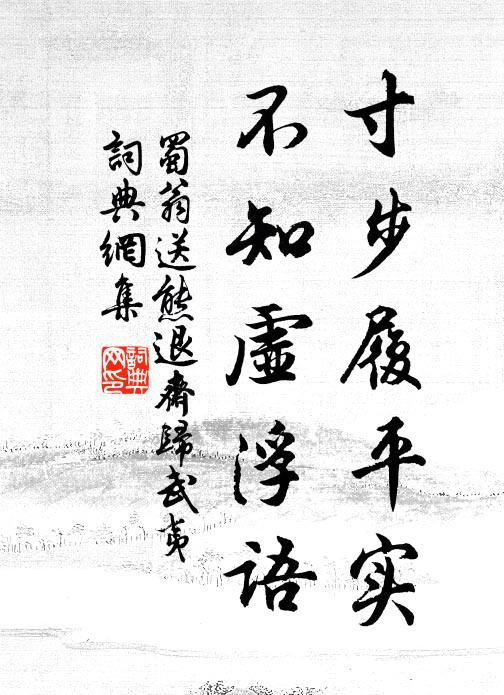 寸步履平实
不知虛浮语
蜀翁送熊退齋歸武夷
詞典網集
詞典网印